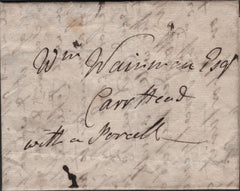 Wm Wainman Esq
Carr Head
with a Parcell